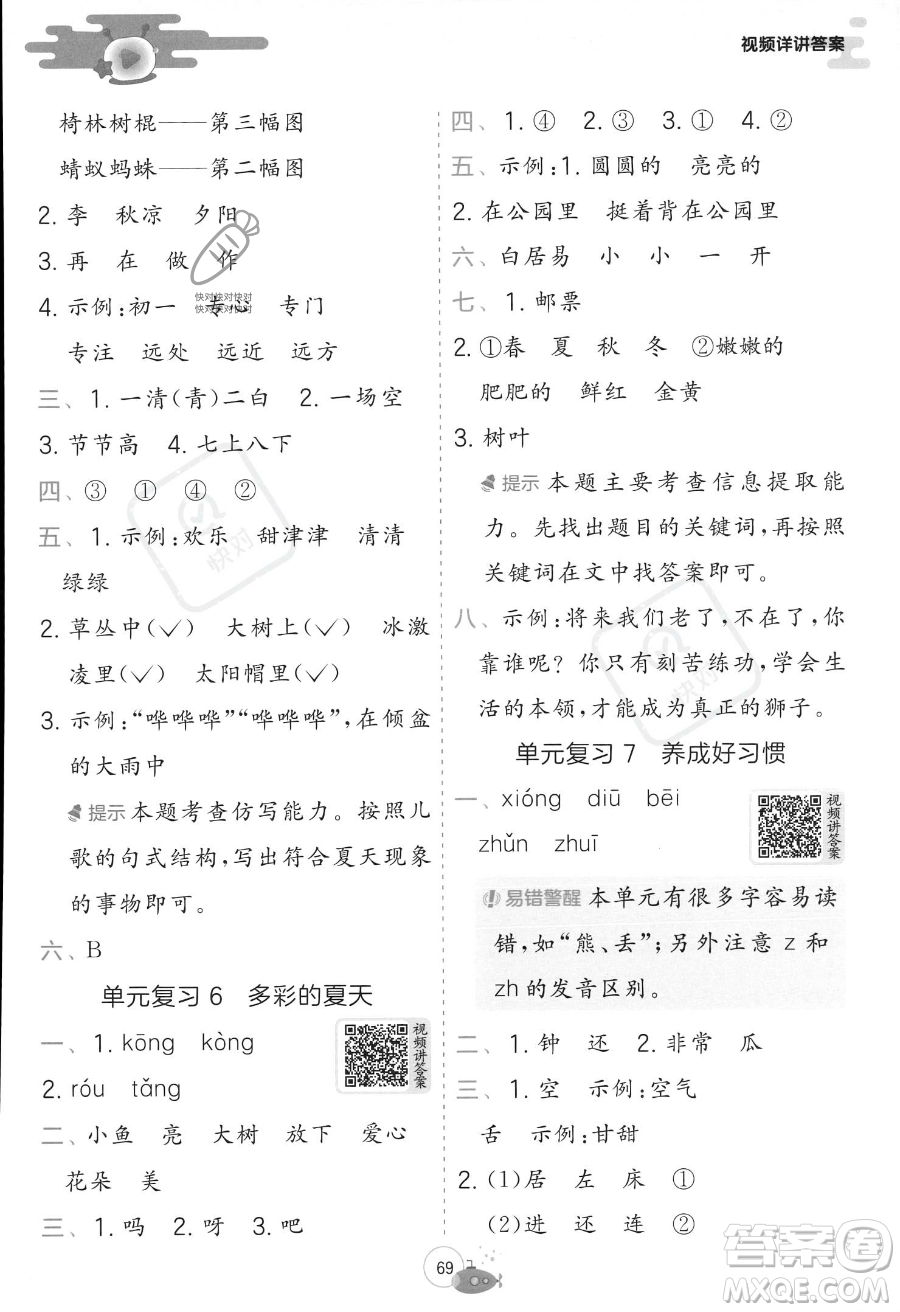 视频详讲答案
椅林树棍——第三幅图
蜻蚁蚂蛛——第二幅图
2. 李 秋凉 夕阳
3. 再 在 做 作
快对快对快对
快对快对快对
4. 示例:初一 专心 专门
专注 远处 远近 远方
三、1. 一清(青)二白 2. 一场空
3. 节节高 4. 七上八下
四、③ ① ④ ②
快对
五、1. 示例:欢乐 甜津津 清清
绿绿
2. 草丛中(✓) 大树上(✓) 冰激
凌里(✓) 太阳帽里(✓)
3. 示例:“哗哗哗”“哗哗哗”,在倾盆
的大雨中
提示 本题考查仿写能力。按照儿
歌的句式结构,写出符合夏天现象
的事物即可。
六、B
单元复习 6 多彩的夏天
一、1. kōng kòng
2. róu tǎng
视频讲答案
二、小鱼 亮 大树 放下 爱心
花朵 美
三、1. 吗 2. 呀 3. 吧
四、1. ④ 2. ③ 3. ① 4. ②
五、示例:1. 圆圆的 亮亮的
2. 在公园里 挺着背在公园里
六、白居易 小 小 一 开
七、1. 邮票
2. ①春 夏 秋 冬 ②嫩嫩的
肥肥的 鲜红 金黄
3. 树叶
提示 本题主要考查信息提取能
力。先找出题目的关键词,再按照
关键词在文中找答案即可。
八、示例:将来我们老了,不在了,你
靠谁呢?你只有刻苦练功,学会生
活的本领,才能成为真正的狮子。
快对
单元复习 7 养成好习惯
一、xióng diū bēi
zhǔn zhuī
视频讲答案
易错警醒 本单元有很多字容易读
错,如“熊、丢”;另外注意 z 和
zh 的发音区别。
二、1. 钟 还 2. 非常 瓜
三、1. 空 示例:空气
舌 示例:甘甜
2. (1)居 左 床 ①
(2)进 还 连 ②
69
答案卷
MXQE.COM